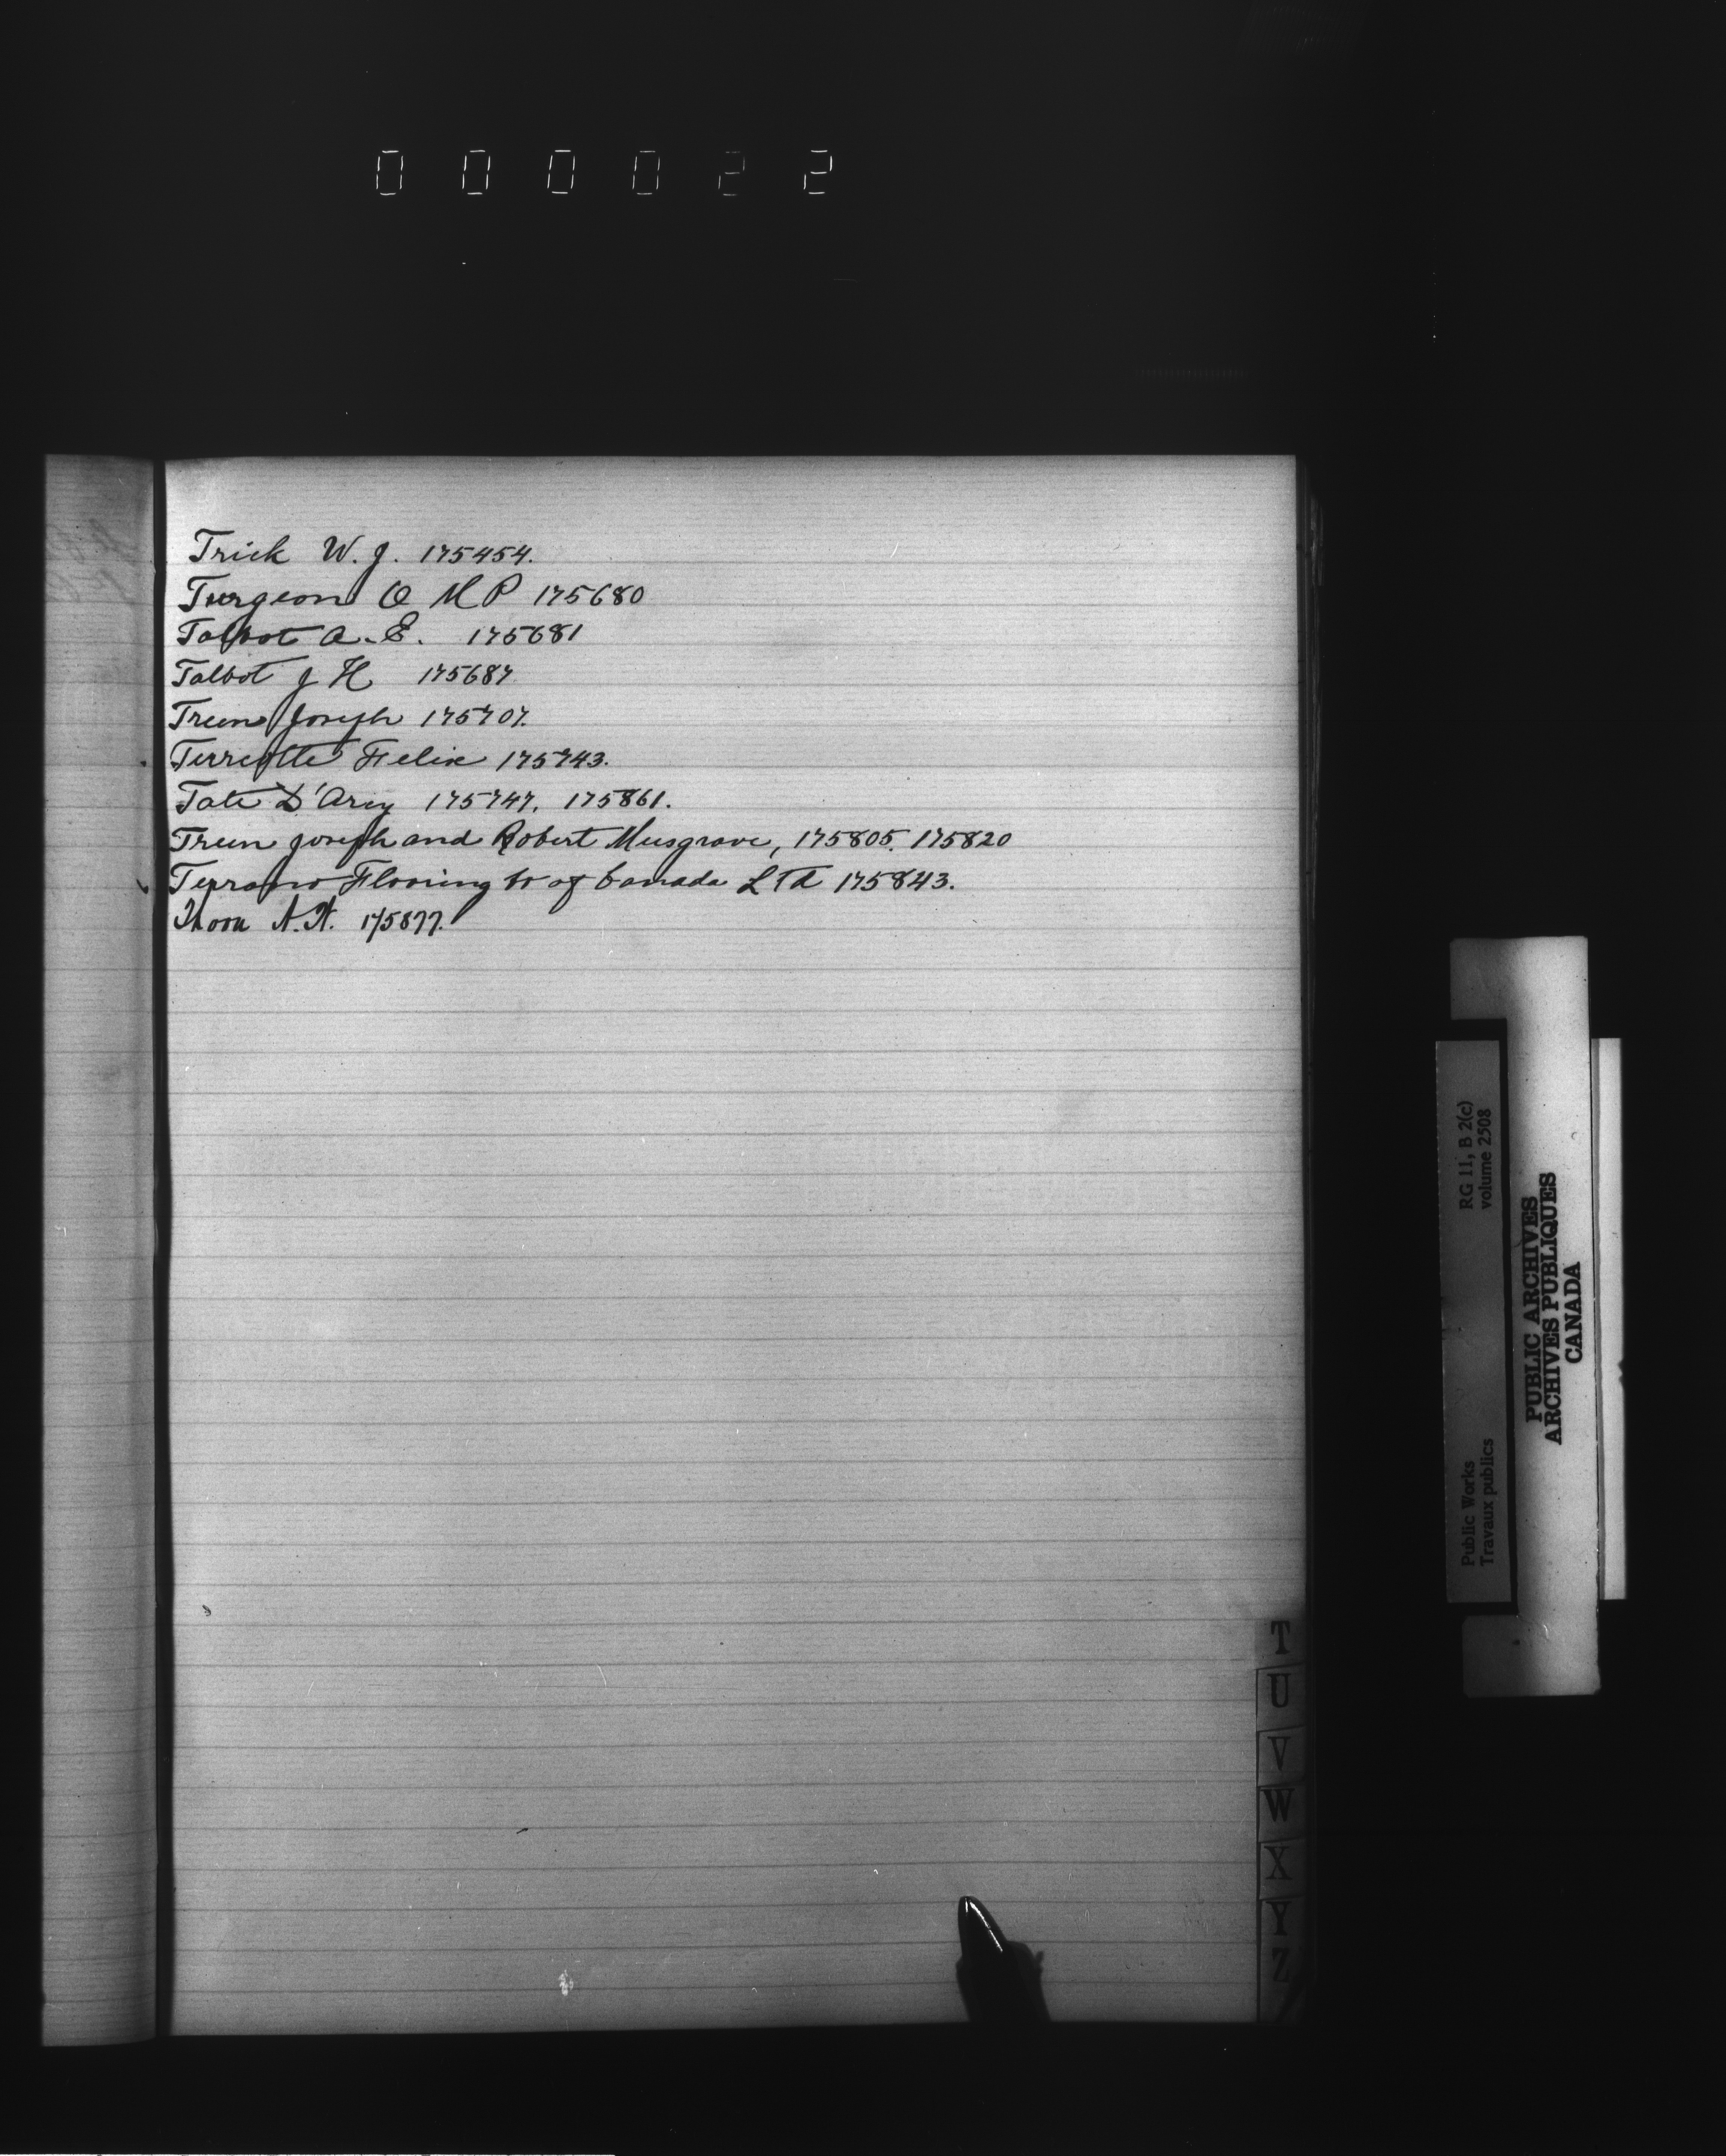 000022
Trick W. J. 175454.
Turgeon O M P 175680
Talbot A. E. 175681
Talbot J H 175687
Treen Joseph 175707.
Terreotte Felix 175743.
Tate D'Arcy 175747. 175861.
Treen Joseph and Robert Musgrave, 175805. 175820
Terrano Flooring Co of Canada LTd 175843.
Thom 175877.
T
U
V
W
X
Y
Z
RG 11, B 2(c)
volume 2508
Public Works
Travaux publics
PUBLIC ARCHIVES
ARCHIVES PUBLIQUES
CANADA